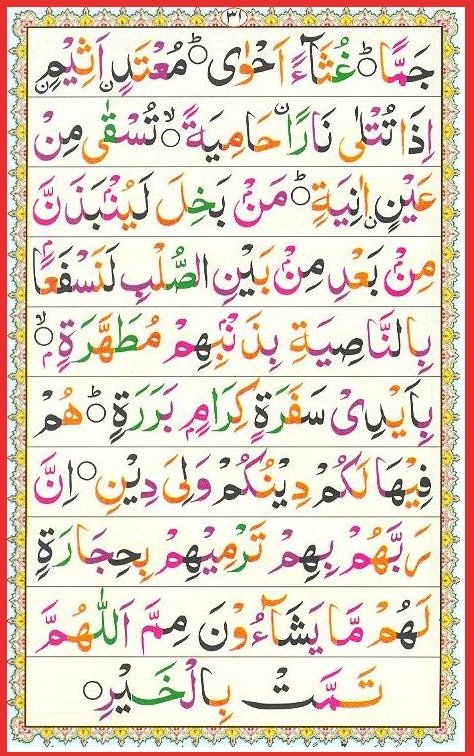 ٣١
جَمًّا ۝ؕ غُثَآءً اَحْوٰى ۝ؕ مُعْتَدٍ اَثِيْمٍ ۙ
اِذَا تُتْلٰى نَارًا حَامِيَةً ۝ۙ تُسْقٰى مِنْ
عَيْنٍ اٰنِيَةٍ ۝ؕ مَنْۢ بَخِلَ لَيُنْۢبَذَنَّ
مِنْۢ بَعْدِ مِنْۢ بَيْنِ الصُّلْبِ لَنَسْفَعًاۢ
بِالنَّاصِيَةِ بِذَنْۢبِهِمْ مُطَهَّرَةٍۭ ۝ۙ
بِاَيْدِىْ سَفَرَةٍ كِرَامٍۭ بَرَرَةٍ ۝ؕ هُمْ
فِيْهَا لَكُمْ دِيْنُكُمْ وَلِىَ دِيْنِ ۝ اِنَّ
رَبَّهُمْ بِهِمْ تَرْمِيْهِمْ بِحِجَارَةٍ
لَهُمْ مَّا يَشَآءُوْنَ مِمَّ اَللّٰهُمَّ
تَمَّتْ بِالْخَيْرِ ۝